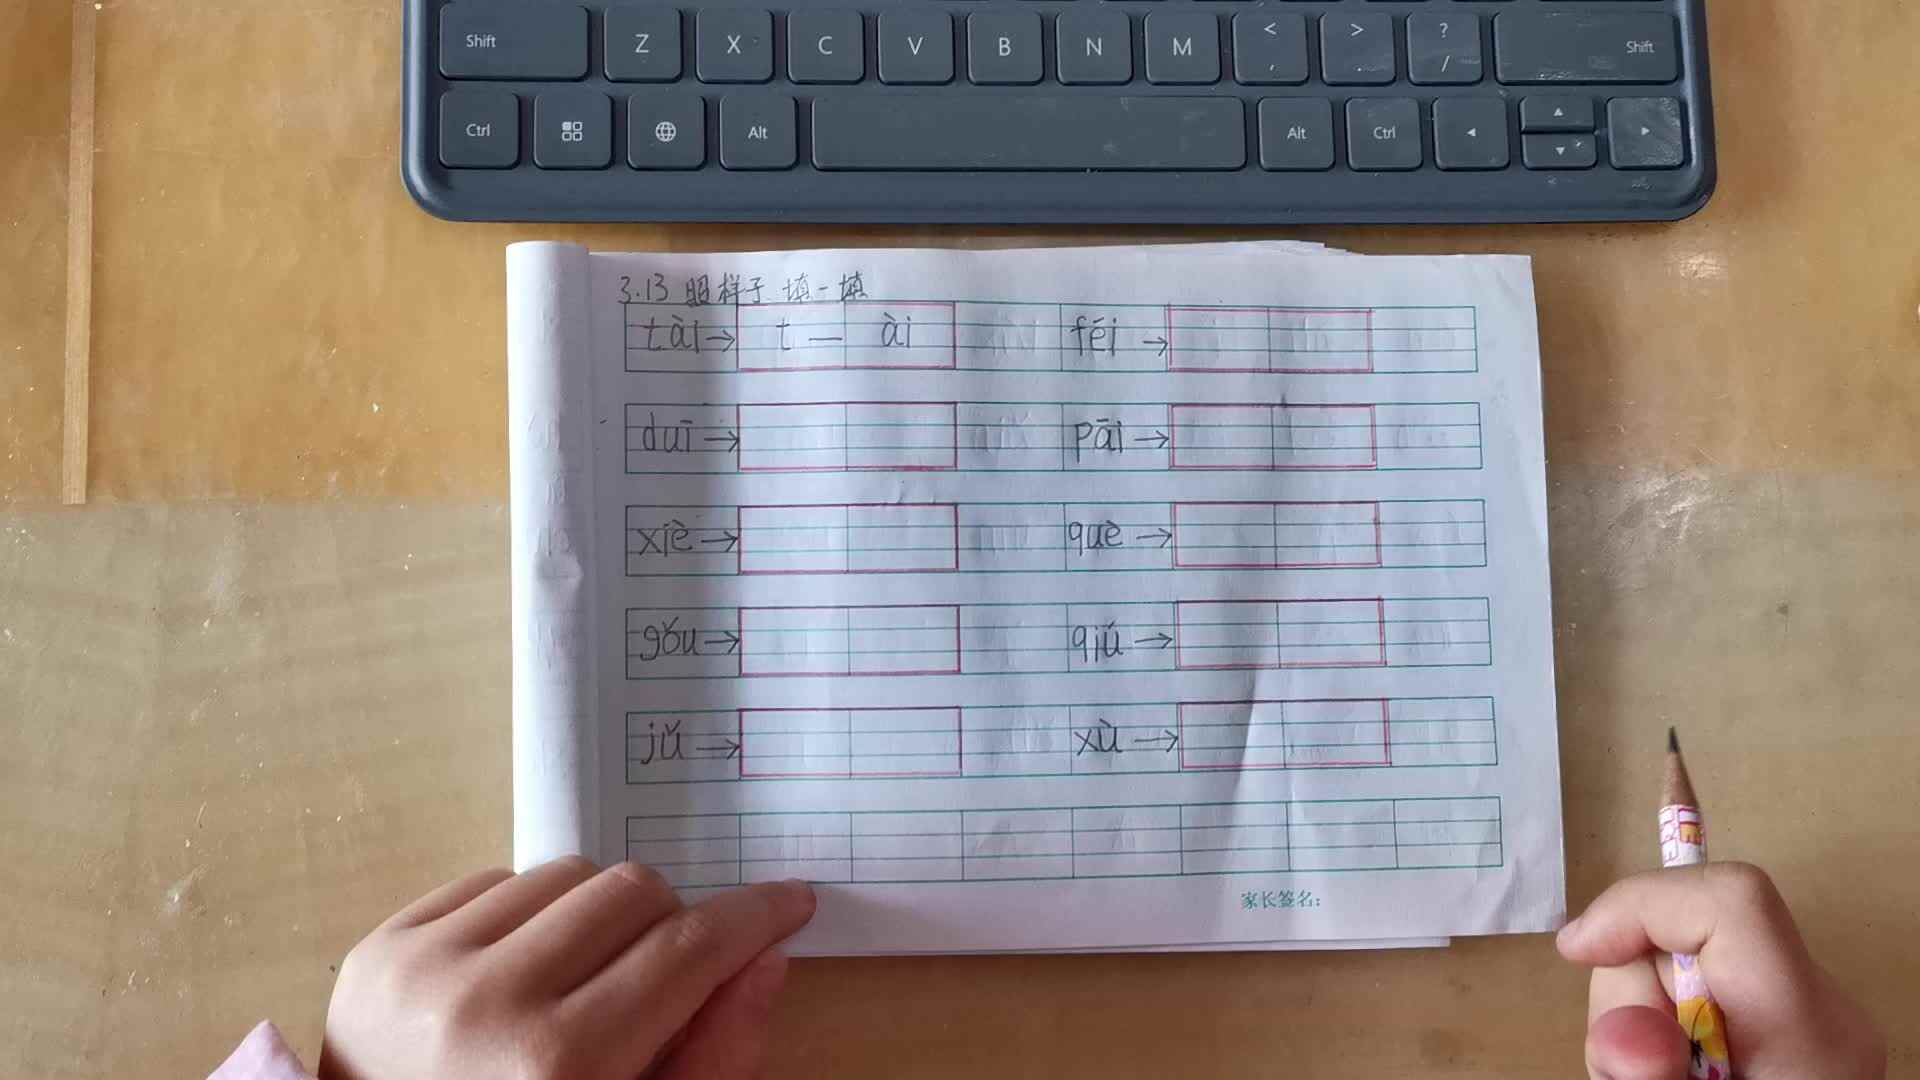 Shift Z X C V B N M < , > . ? / Shift
Ctrl Alt Alt Ctrl
3.13 照样子 填一填
tài→ t — ài fēi →
duī→ pāi→
xiè→ què→
gǒu→ qiú→
jǔ → xù →
家长签名: